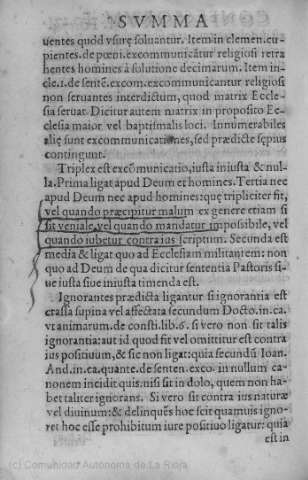 SVMMA
uentes quòd vsuræ soluantur. Item in clemen. cu-
pientes. de pœni. excommunicãtur religiosi retra
hentes homines à solutione decimarum. Item in-
cle. 1. de sentẽ. excom. excommunicantur religiosi
non seruantes interdictum, quod matrix Eccle-
sia seruat. Dicitur autem matrix in proposito Ec-
clesia maior vel baptismalis loci. Innumerabiles
aliæ sunt excommunicationes, sed prædictæ sępius
contingunt.
Triplex est excõmunicatio, iusta iniusta & nul-
la. Prima ligat apud Deum et homines. Tertia nec
apud Deum nec apud homines: quę tripliciter fit,
vel quando præcipitur malum ex genere etiam si
sit veniale, vel quando mandatur impossibile, vel
quando iubetur contra ius scriptum. Secunda est
media & ligat quo ad Ecclesiam militantem: non
quo ad Deum de qua dicitur sententia Pastoris si-
ue iusta siue iniusta timenda est.
Ignorantes prædicta ligantur si ignorantia est
crassa supina vel affectata secundum Docto. in ca.
vt animarum. de consti. lib. 6. si vero non sit talis
ignorantia: aut id quod fit vel omittitur est contra
ius positiuum, & sic non ligat: quia secundũ Ioan.
And. in ca. quante. de senten. exco. in nullum ca-
nonem incidit quis. nisi sit in dolo, quem non ha-
bet taliter ignorans. Si vero sit contra ius naturæ
vel diuinum: & delinquẽs hoc scit quamuis igno-
ret hoc esse prohibitum iure positiuo ligatur: quia
est in
(c) Comunidad Autónoma de La Rioja